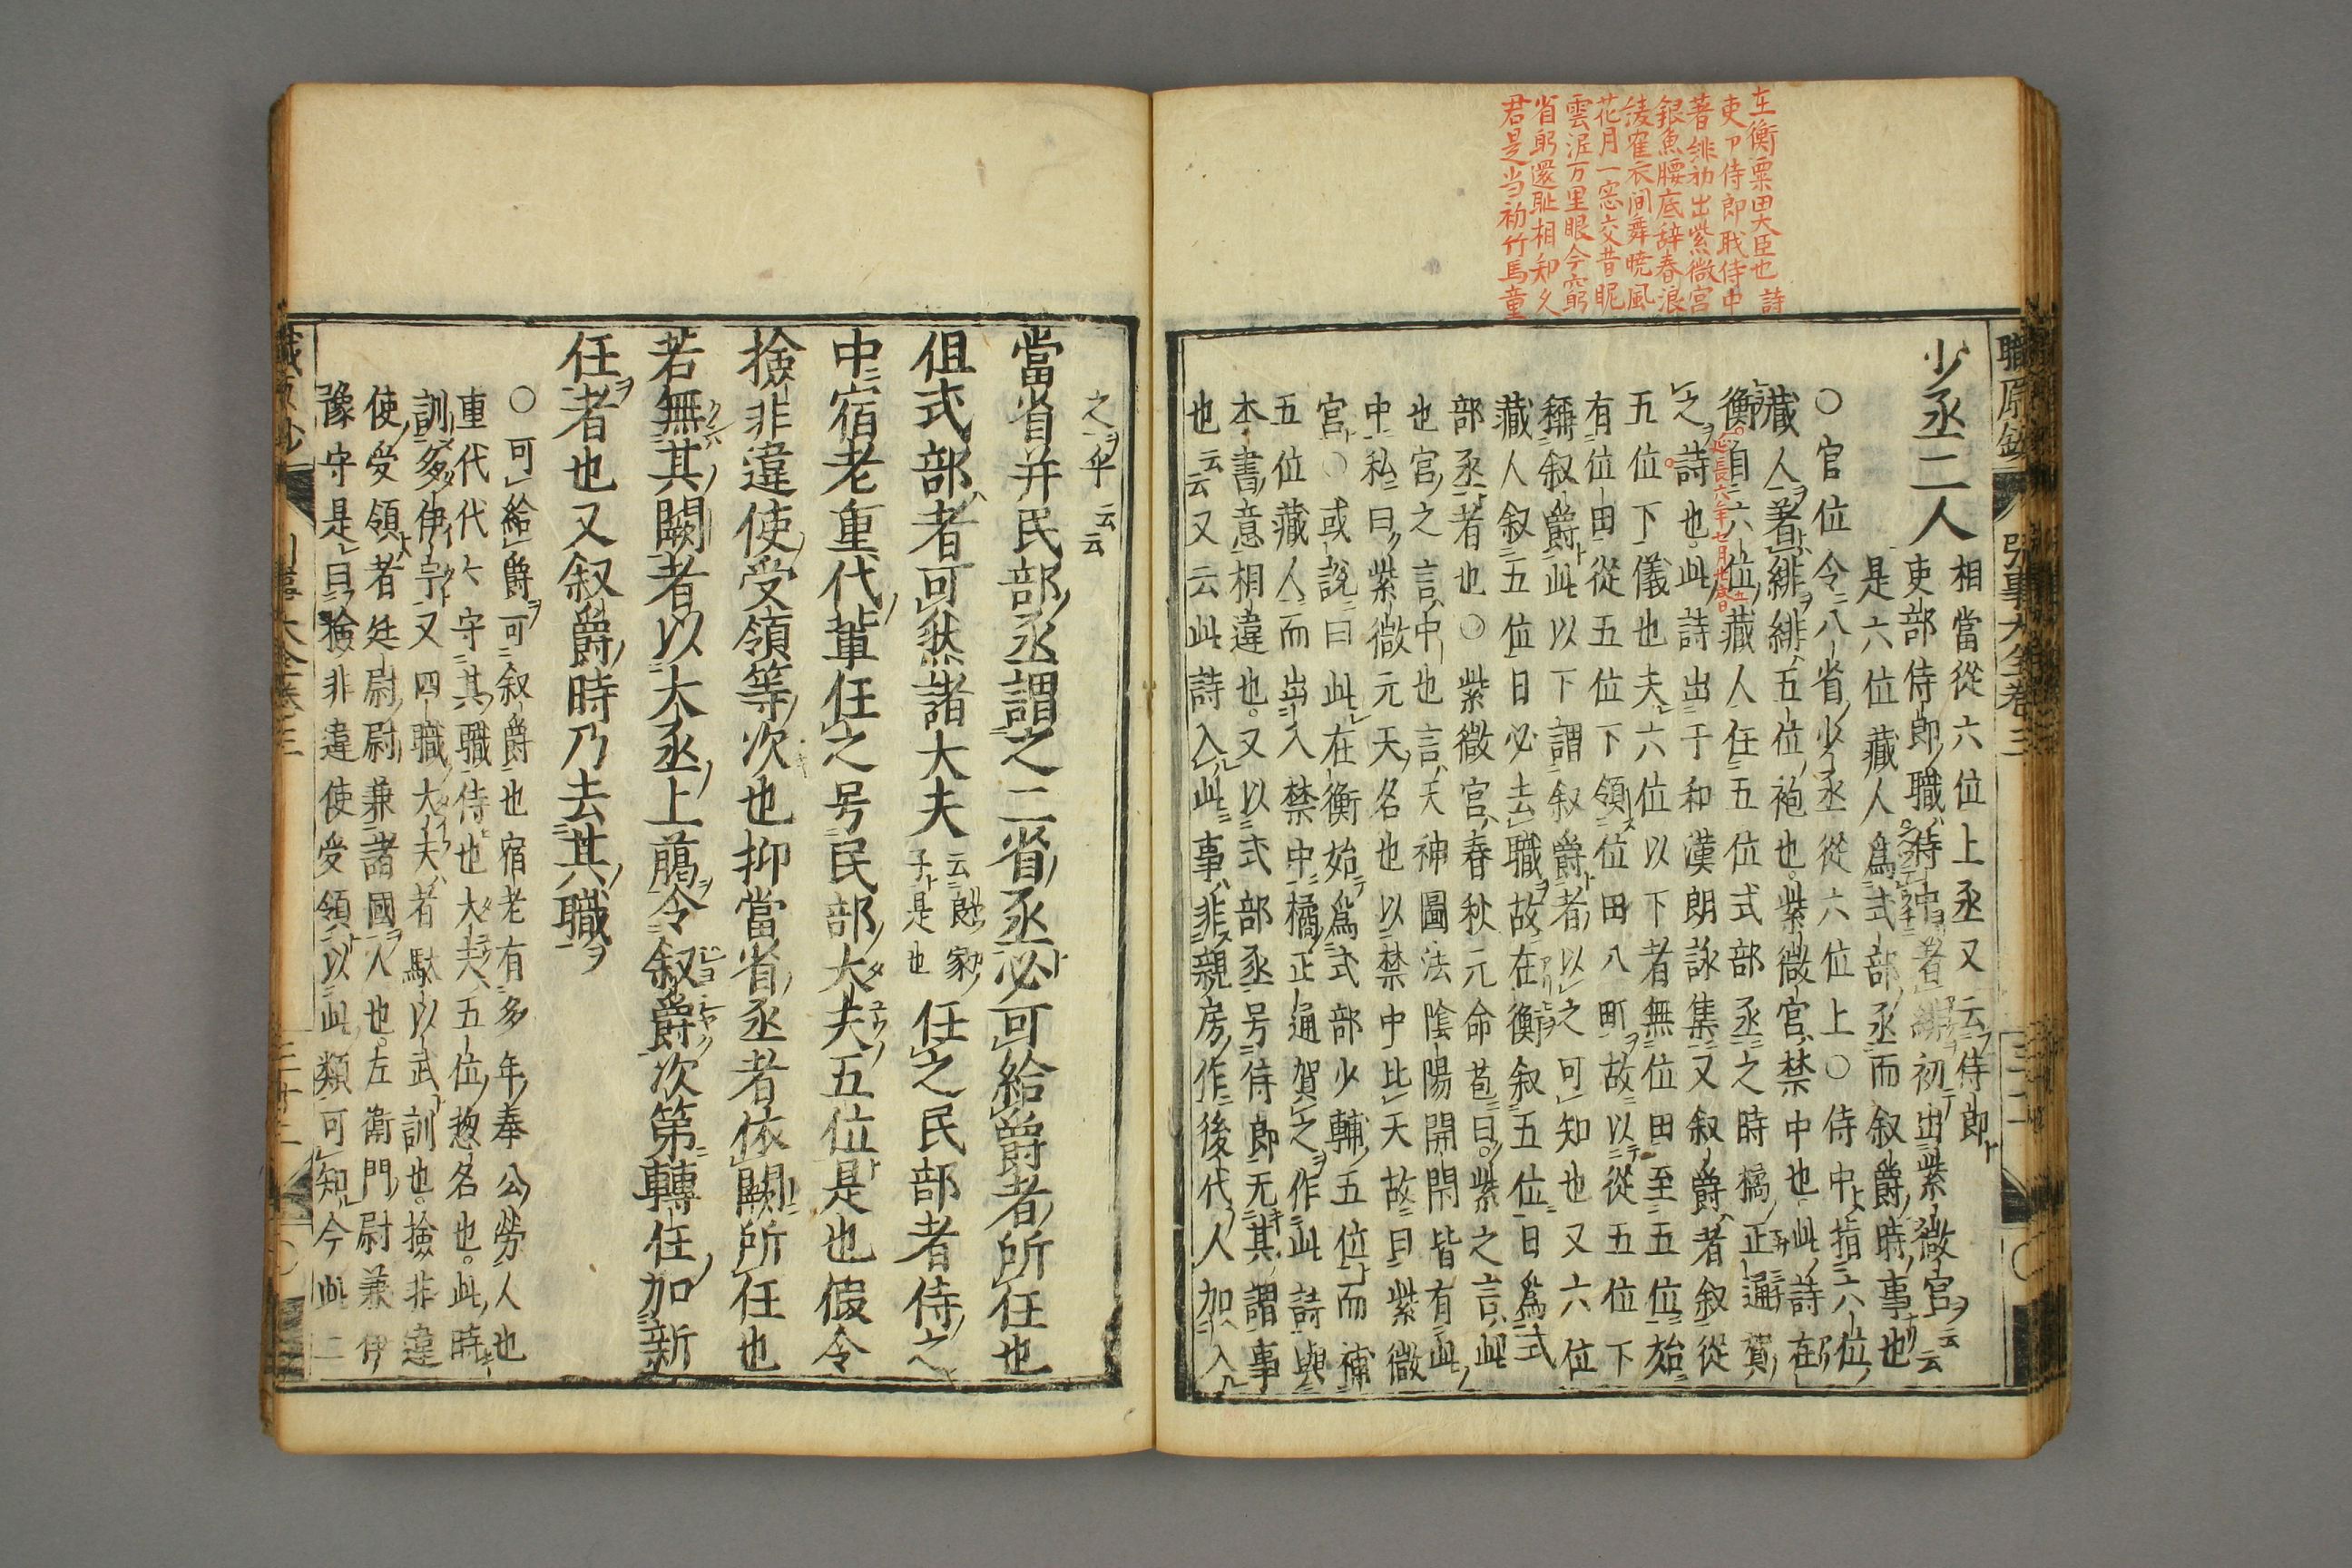 在衡粟田大臣也 詩
吏卩侍郎戝侍中
著緋初出紫微宮
銀魚腰底辞春浪
綾窠衣间舞暁風
花月一窓交昔昵
雲泥万里眼今窮
省躬還耻相知久
君是当初竹馬童
職原鈔 引事大全巻三 三二
少丞二人 相當從六位上丞又云侍郎
吏部侍郎職侍中著緋初出紫微宮云云
是六位藏人爲式部丞而叙爵時事也
○官位令八省少丞從六位上○侍中指六位
藏人著緋緋五位袍也紫微宮禁中也此詩在
衡自六位藏人任五位式部丞之時橘正通賀
延長六年七月廿五日
之詩也此詩出于和漢朗詠集又叙爵者叙從
五位下儀也夫六位以下者無位田至五位始
有位田從五位下領位田八町故以從五位下
稱叙爵此以下謂叙爵者以之可知也又六位
藏人叙五位日必去職故在衡叙五位日爲式
部丞者也○紫微宮春秋元命苞曰紫之言此
也宮之言中也言天神圖法陰陽開閉皆有此
中私曰紫微元天名也以禁中比天故曰紫微
宮○或說曰此在衡始爲式部少輔五位而補
五位藏人而出入禁中橘正通賀之作此詩與
本書意相違也又以式部丞号侍郎无其謂事
也云云又云此詩入此事非親房作後代人加入
之㕘云云
當省并民部丞謂之二省丞必可給爵者所任也
但式部者可然諸大夫云郎家子是也任之民部者侍之
中宿老重代輩任之号民部大夫五位是也假令
撿非違使受領等次也抑當省丞者依闕所任也
若無其闕者以大丞上﨟令叙爵次第轉任加新
任者也又叙爵時乃去其職
○可給爵可叙爵也宿老有多年奉公勞人也
重代代々守其職侍也大夫五位惣名也此時
訓多伊宇又四職大夫者馱以武訓也撿非違
使受領者廷尉尉兼諸國人也左衛門尉兼伊
豫守是曰撿非違使受領以此類可知今此二